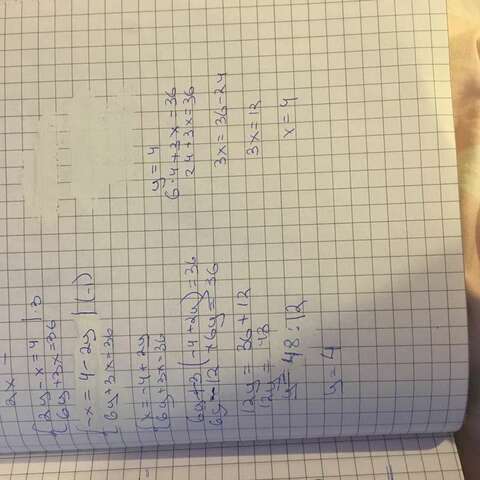 2x =
2y - x = 4 | · 3
6y + 3x = 36
-x = 4 - 2y | (-1)
6y + 3x = 36
x = -4 + 2y
6y + 3x = 36
6y + 3(-4 + 2y) = 36
6y - 12 + 6y = 36
12y = 36 + 12
12y = 48
y = 48 : 12
y = 4
y = 4
6 · 4 + 3x = 36
24 + 3x = 36
3x = 36 - 24
3x = 12
x = 4